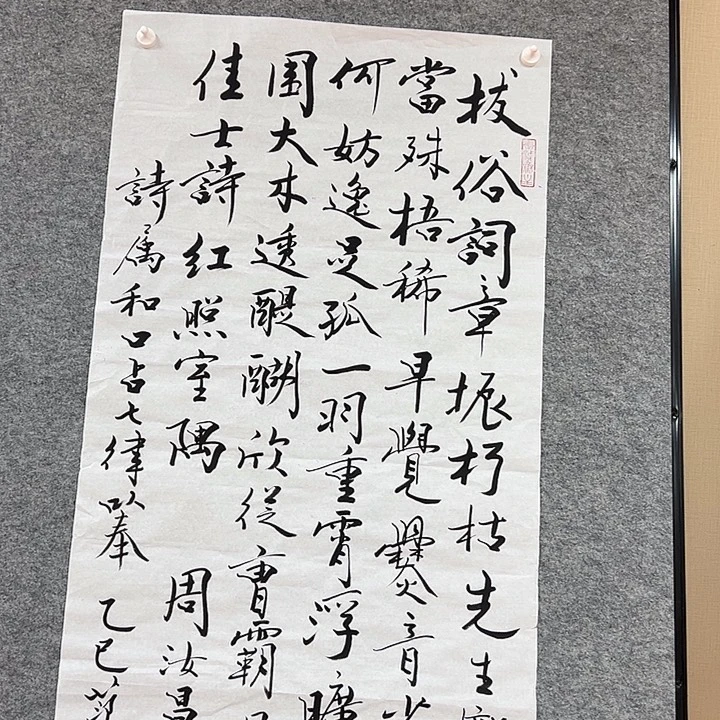 拔俗詞章振朽枯先生
當殊梧稀早覺爨音
何妨逸足孤一羽重霄浮曠
圍大木透醍醐欣從曹霸
佳士詩紅照室隅 周汝昌
詩属和口占七律以奉 乙巳